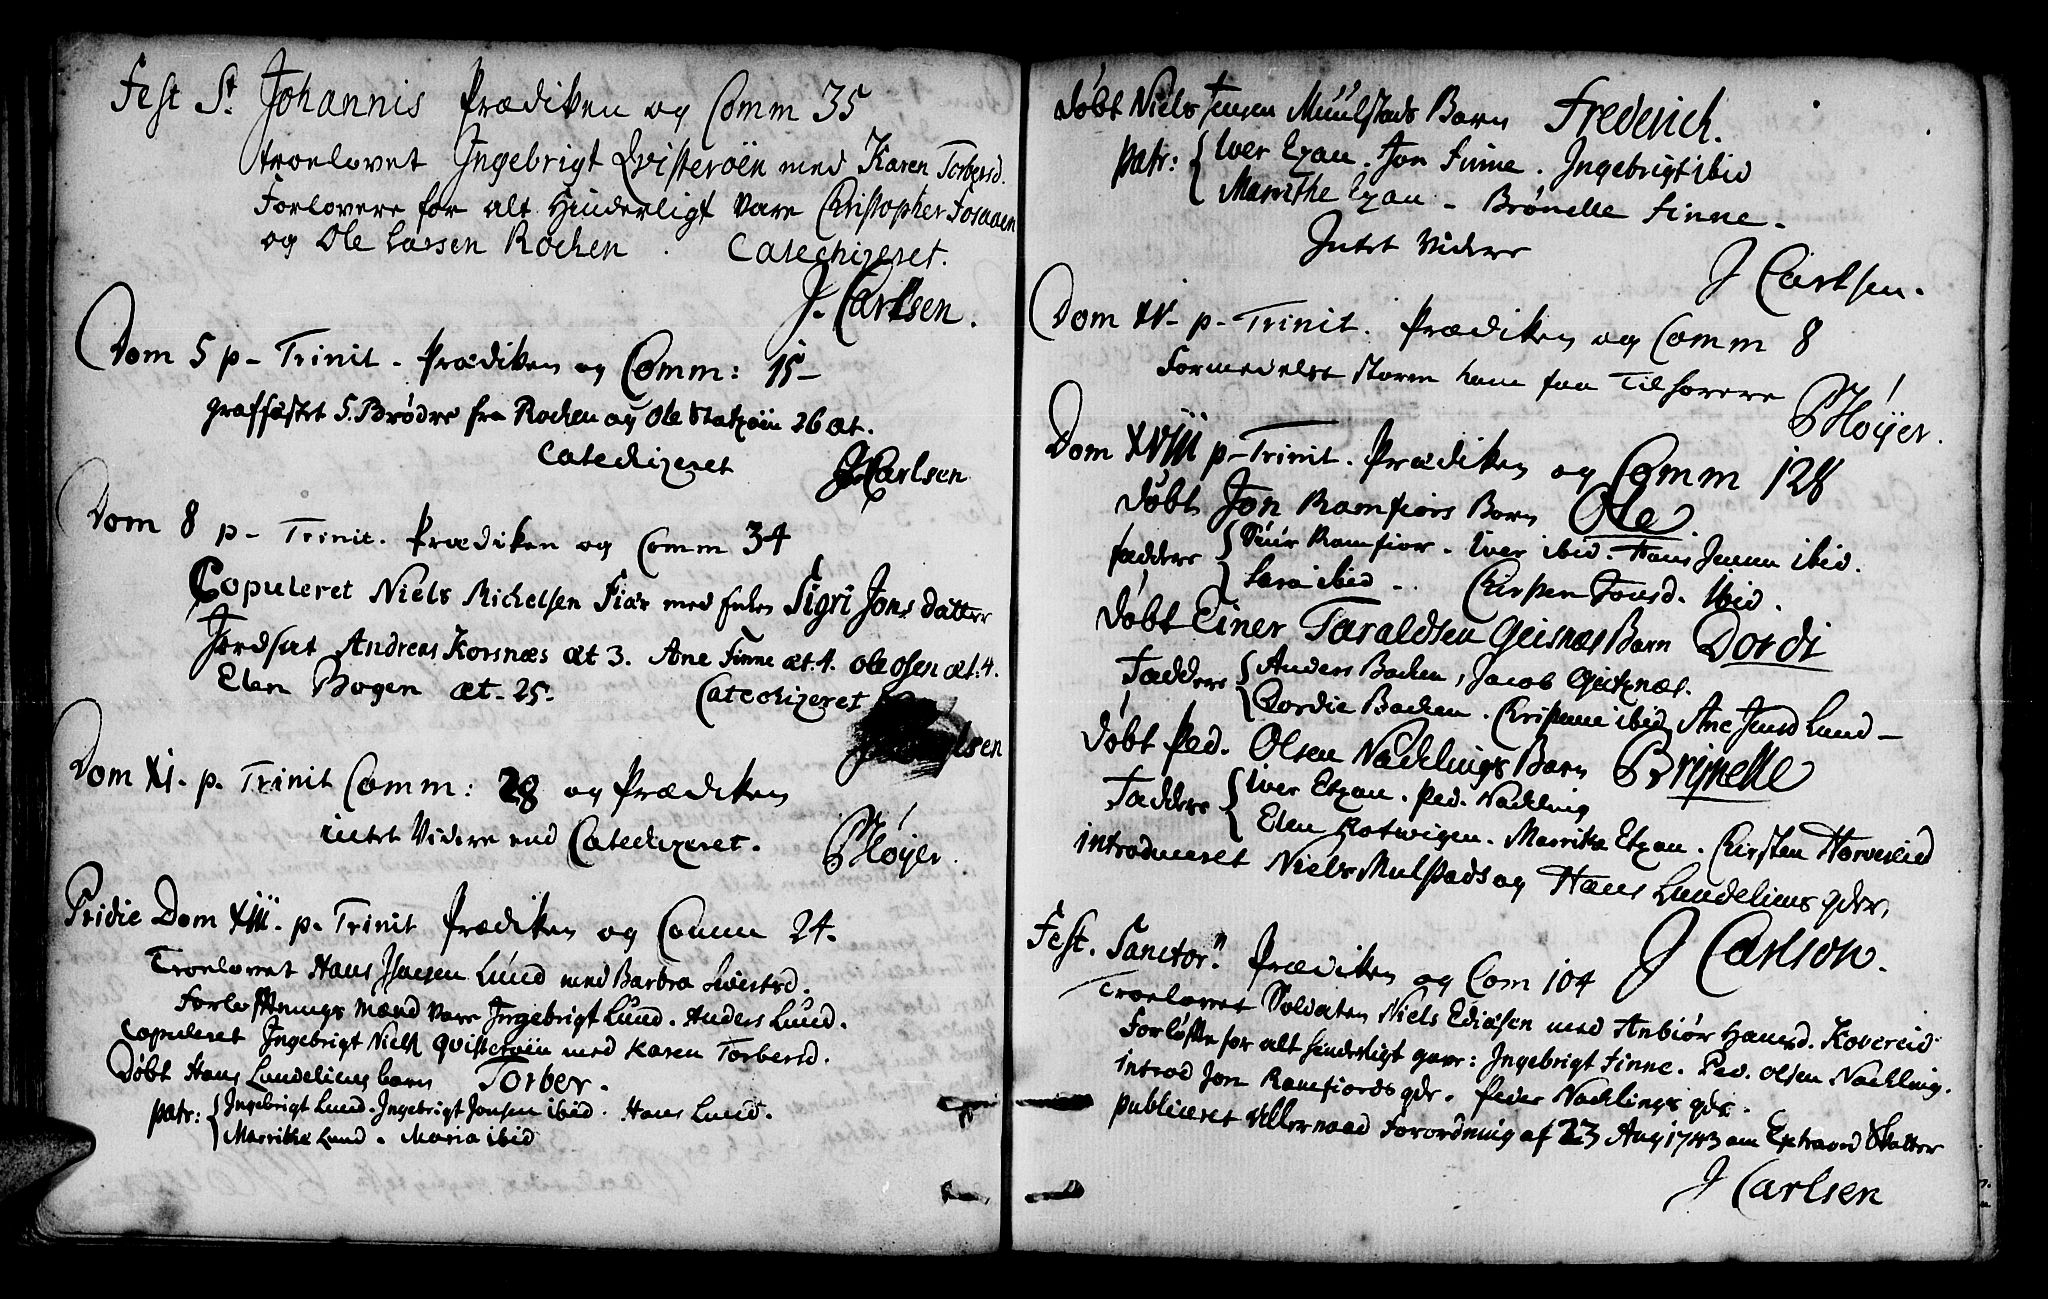 Fest St Johannis Prædiken og Comm 35
troelovet Ingebrigt Qvisterøen med Karen Torbersd.
Forlovere for alt Hinderligt vare Christopher Fosnaen
og Ole Larsen Rochen . Catechizeret.
J. Carlsen.
Dom 5 p- Trinit. Prædiken og Comm: 15-
graffæstet 5. Brødre fra Rochen og Ole Statzøin 26 æt.
Catechizeret JCarlsen
Dom 8 p- Trinit. Prædiken og Comm 34
Copuleret Niels Michelsen Fiær med Sigri Jons datter
Jordsat Andreas Korsnæs æt 3. Ane Finne æt.4. ole osen æt.4.
Elen Bogen æt- 25. Catechizeret
Dom XI. p. Trinit Comm: 28 og Prædiken
intet Videre end Catechizeret. Høyer.
Pridie Dom XIII. p. Trinit Prædiken og Comm 24.
Troelovet Hans Jensen Lund med Barbra Sivertsd.
Forløftnings mænd vare Ingebrigt Lund. Anders Lund.
Copuleret Ingebrigt Niels med Karen Torbersd.
Døbt Hans Lundeliens barn Torber.
patr: Ingebrigt Lund. Ingebrigt Jonsen ibid. Hans Lund.
Marrithe Lund. Maria ibid
Døbt Niels Jensen Muulstads Barn Frederich.
patr: Iver Etzan. Jon Finne. Ingebrigt ibid
Marrithe Etzan - Brønelle Finne.
Intet Videre
J Carlsen.
Dom XV- p- Trinit. Prædiken og Comm 8
Formedelst storm kom faa Tilhørere
Høyer.
Dom XVIII p- Trinit. Prædiken og Comm 128
Døbt Jon Ramfiors Barn Ole
faddere Siur Ramfior. Iver ibid. Hans Jensen ibid.
Sara ibid - Chirsten Jonsd. ibid.
Døbt Einer Taraldsen Geisnæs Barn Dordi
Faddere Anders Bachen, Jacob Geisnæs.
Dordie Bachen. ibid Ane Jensd Lund-
Døbt Ped. Olsen Nachlings Barn
Faddere Iver Etzan. Ped. Nachling
Elen Rotwigen. Marrithe Etzan. Chirsten Horvereid
introduceret Niels Mulstads og Hans Lundeliens qdr.
J Carlson.
Fest. Sanctor. Prædiken og Com 104
Troelovet Soldaten Niels Ediasen med Anbiør Hansd. Kovereid
Forløfte for alt hinderligt gave: Ingebrigt Finne. Ped. Olsen Nachling.
introd Jon Ramfiords qdr. Peder Nachlings qdr.
publiceret Forordning af 23 Aug 1743 om Extraord Skatter
J Carlsen